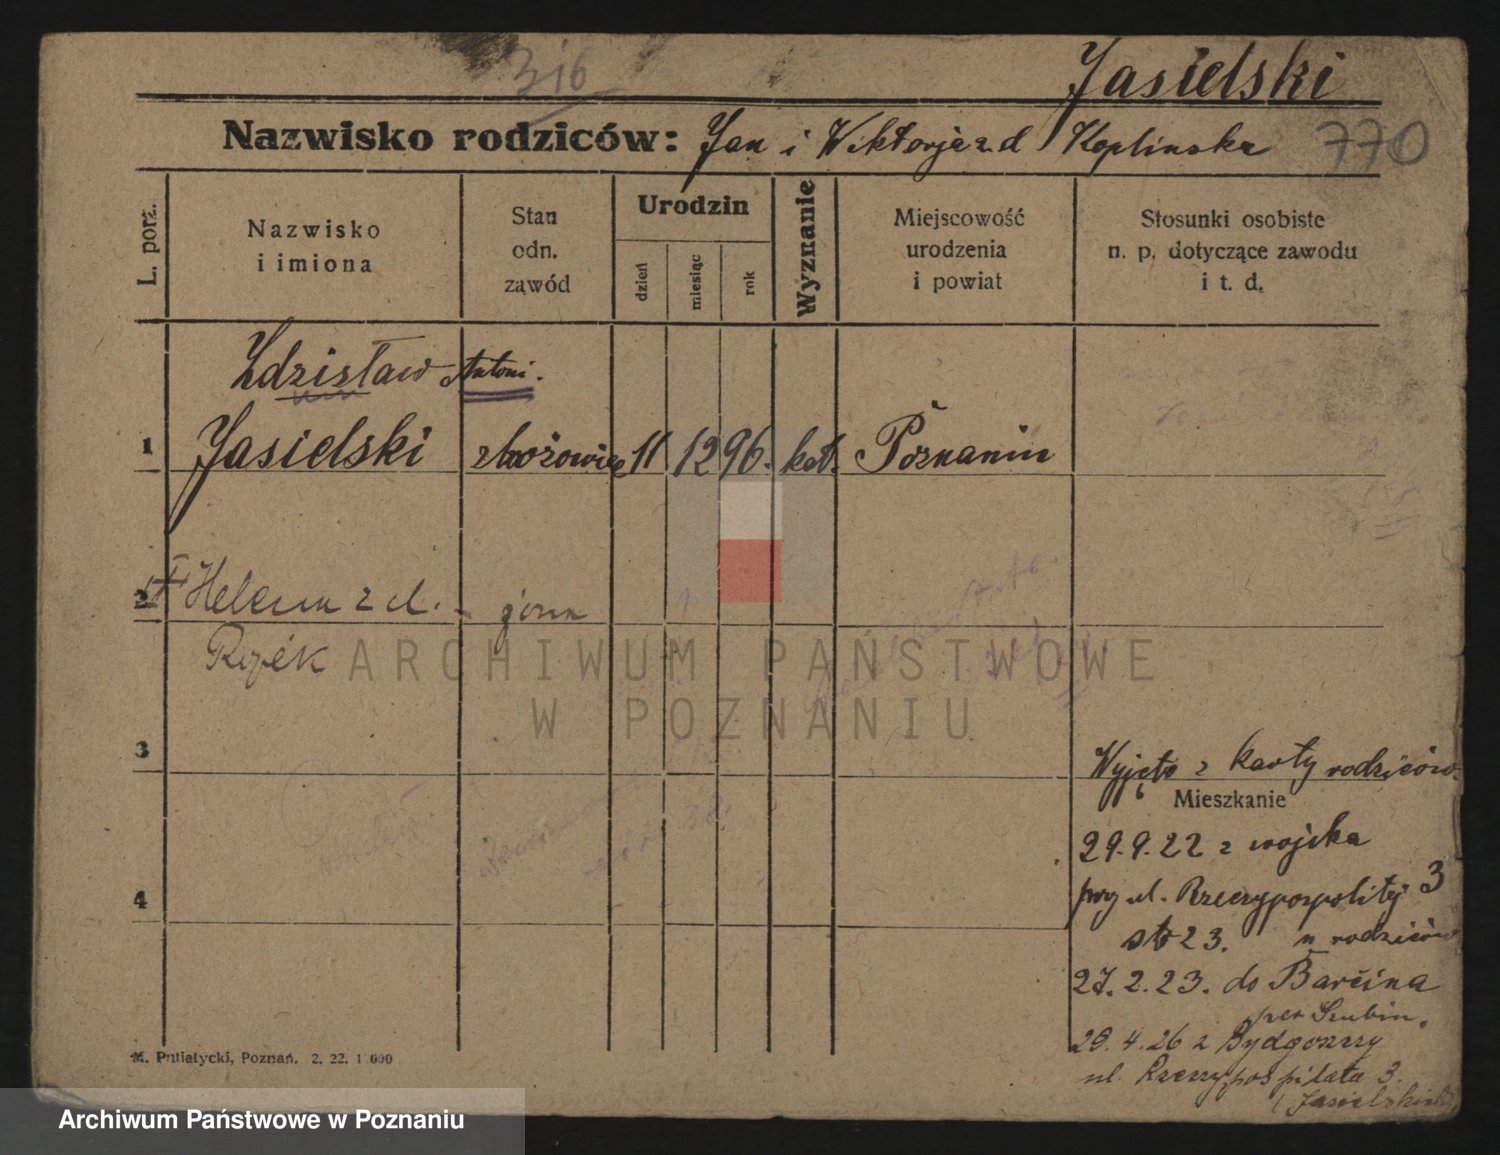 316
Jasielski
Nazwisko rodziców: Jan i Wiktorja z d Koplinska 770
L. porz.
Nazwisko
i imiona
Stan
odn.
zawód
Urodzin
dzień
miesiąc
rok
Wyznanie
Miejscowość
urodzenia
i powiat
Stosunki osobiste
n. p. dotyczące zawodu
i t. d.
Zdzisław Antoni.
1 Jasielski zbożowiec 11 12 96. kat. Poznaniu
2 Helena z d. - żona
ARCHIWUM PAŃSTWOWE
W POZNANIU
3
Wyjęto z karty rodziców
Mieszkanie
29.9.22 z wojska
przy ul. Rzeczypospolitej 3
st 23. u rodziców
4
27.2.23. do Barcina
pow Szubin.
28.4.26 z Bydgoszczy
ul. Rzeczypospolita 3.
M. Putiatycki, Poznań. 2. 22. 1 000
Archiwum Państwowe w Poznaniu